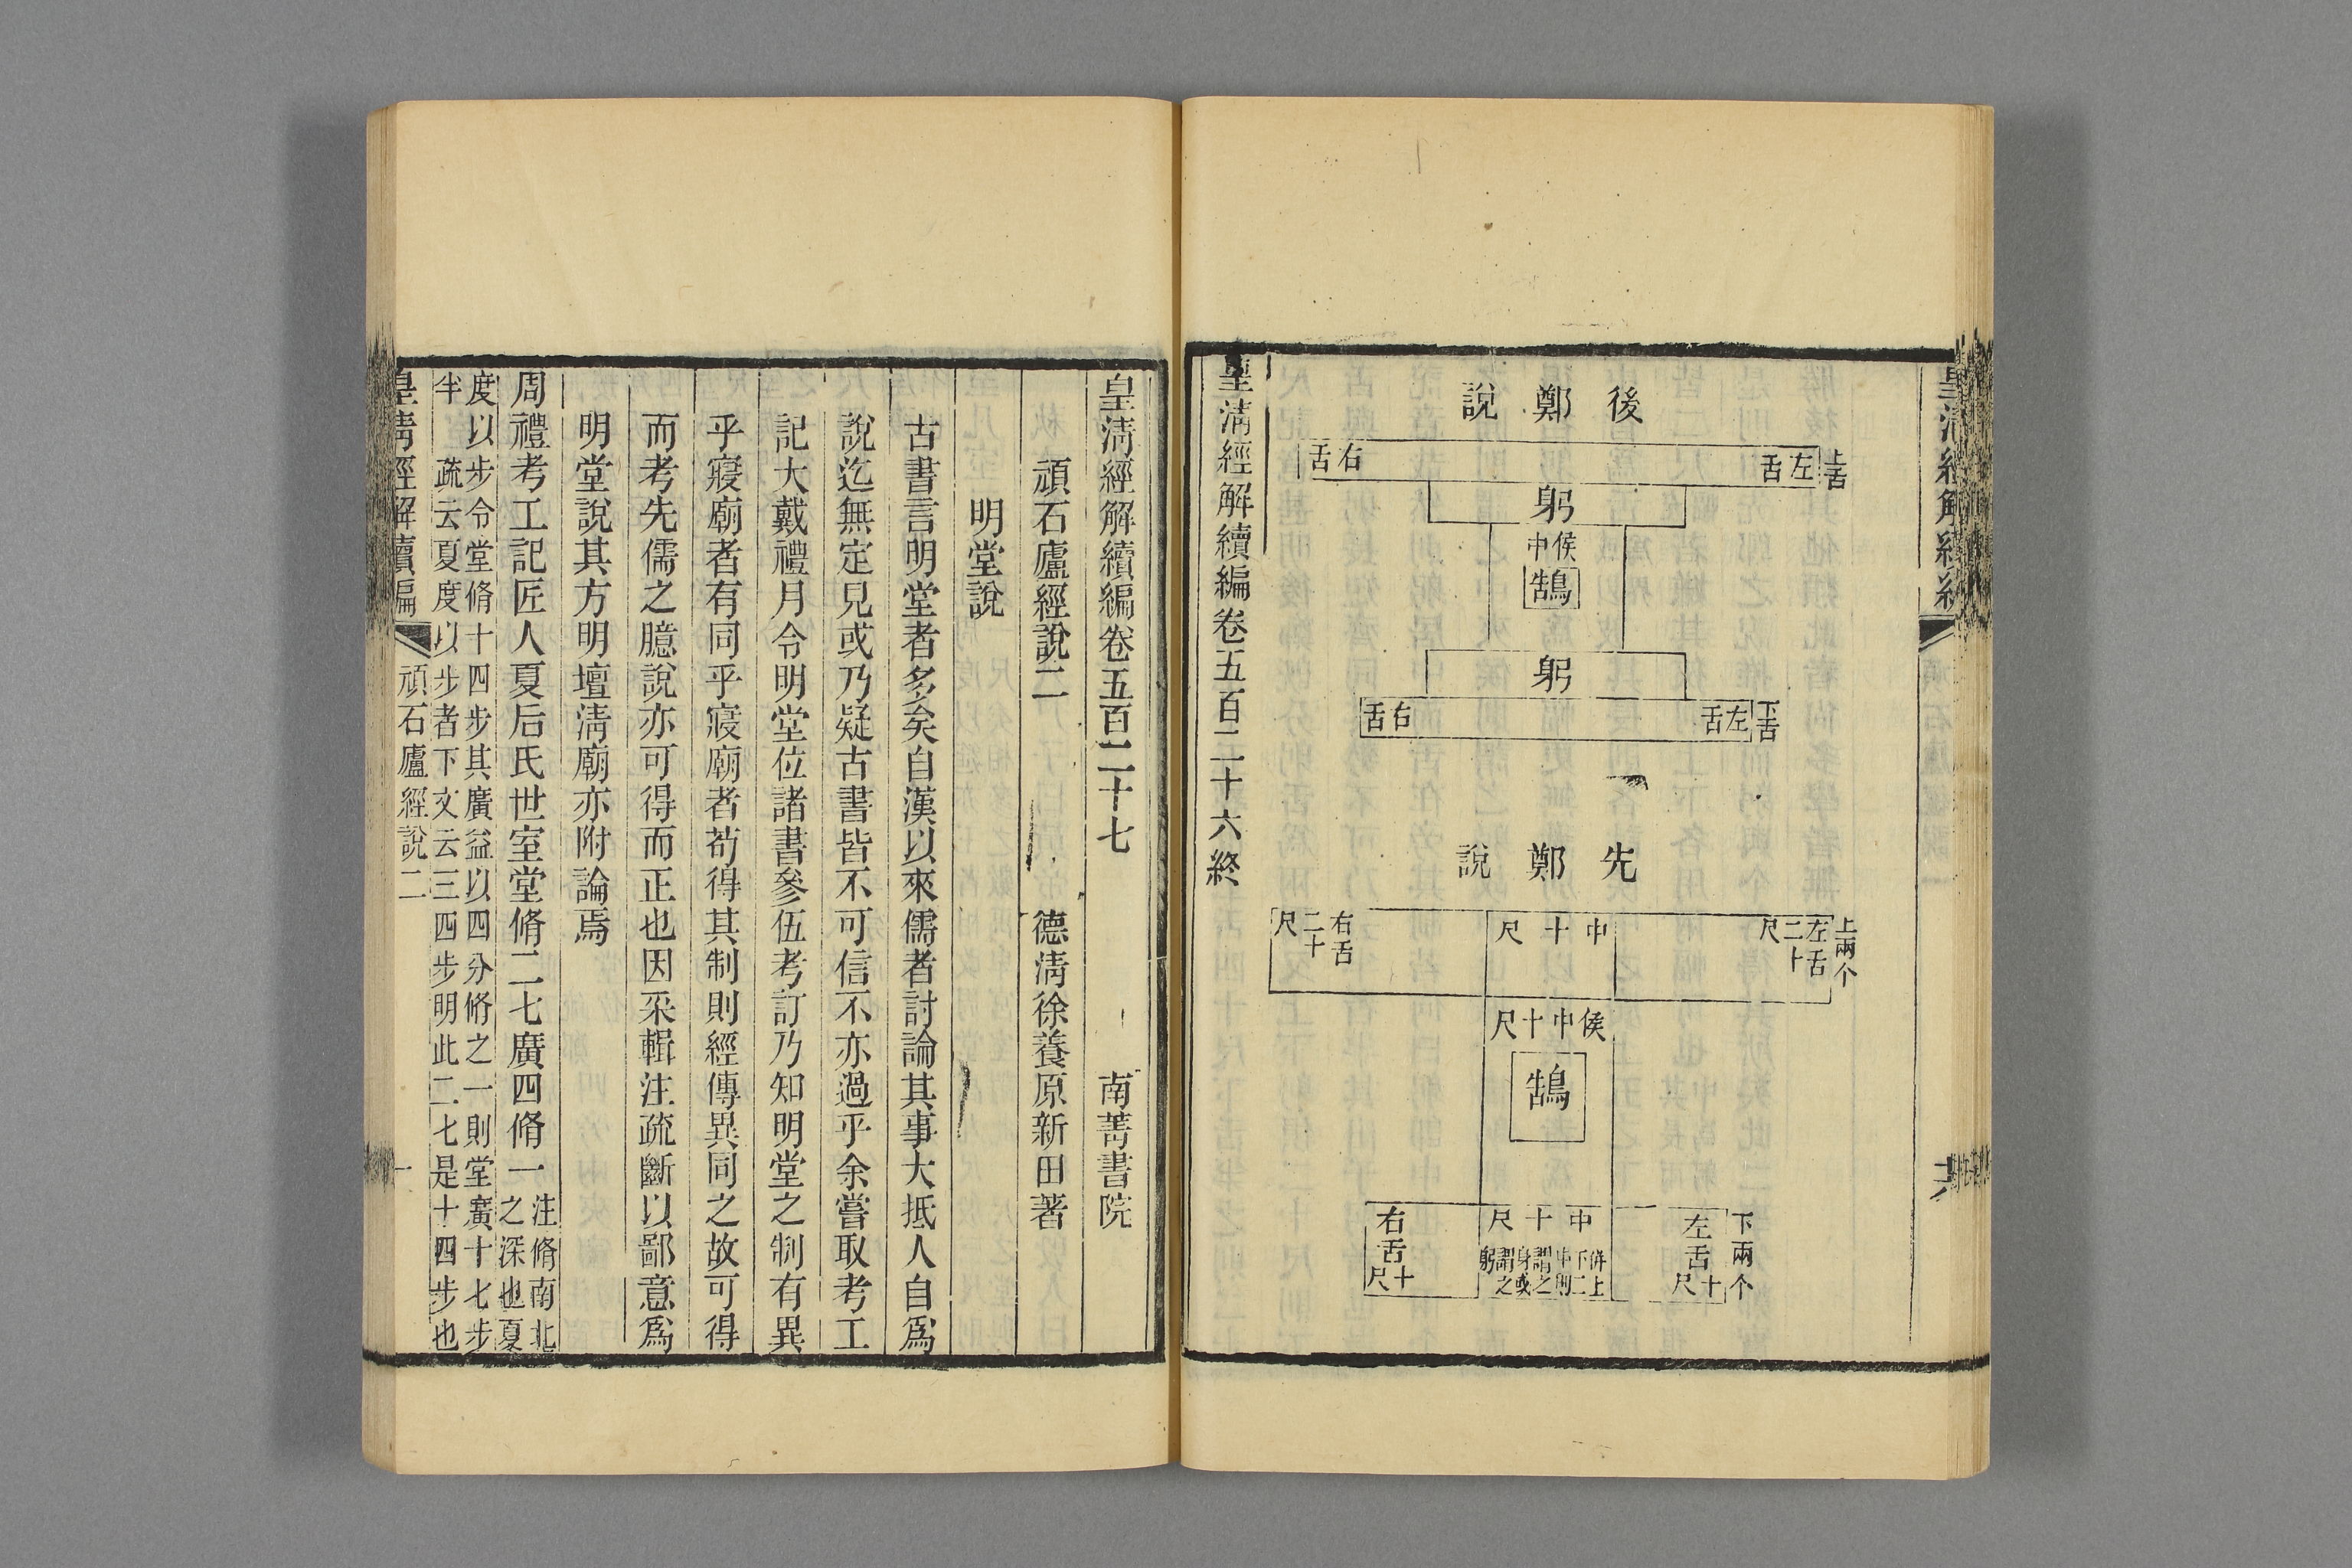 後鄭說
上舌
左舌
右舌
躬
侯中
鵠
躬
下舌
左舌
右舌
先鄭說
上兩个
左舌二十尺
中十尺
右舌二十尺
侯中十尺
鵠
下兩个
左舌十尺
中十尺
併上下二中則謂之身或謂之躬
右舌十尺
皇淸經解續編卷五百二十六終
皇淸經解續編卷五百二十七 南菁書院
頑石廬經說二 德淸徐養原新田著
明堂說
古書言明堂者多矣自漢以來儒者討論其事大抵人自爲
說迄無定見或乃疑古書皆不可信不亦過乎余嘗取考工
記大戴禮月令明堂位諸書參伍考訂乃知明堂之制有異
乎寢廟者有同乎寢廟者苟得其制則經傳異同之故可得
而考先儒之臆說亦可得而正也因采輯注疏斷以鄙意爲
明堂說其方明壇淸廟亦附論焉
周禮考工記匠人夏后氏世室堂脩二七廣四脩一
注脩南北
之深也夏
度以步令堂脩十四步其廣益以四分脩之一則堂廣十七步
半 疏云夏度以步者下文云三四步明此二七是十四步也
皇淸經解續編 頑石廬經說二 一